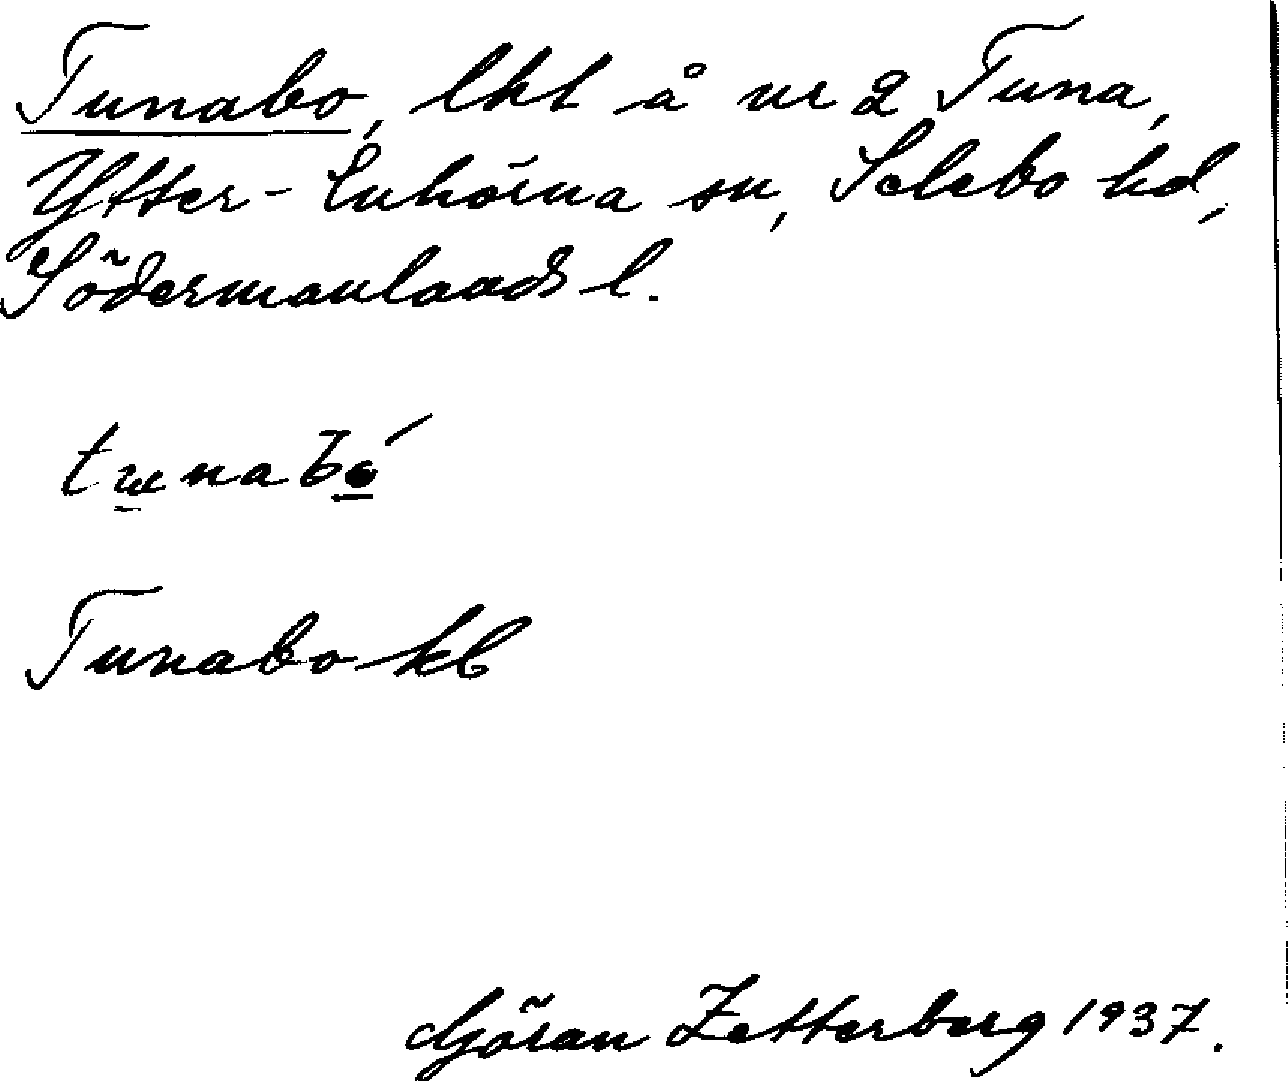 Tunabo, lht å nr 2 Tuna,
Ytter-Enhörna sn, Selebo hd,
Södermanlands l.
tu̲nabo̲´
Tunabo kb
Göran Zetterberg 1937.